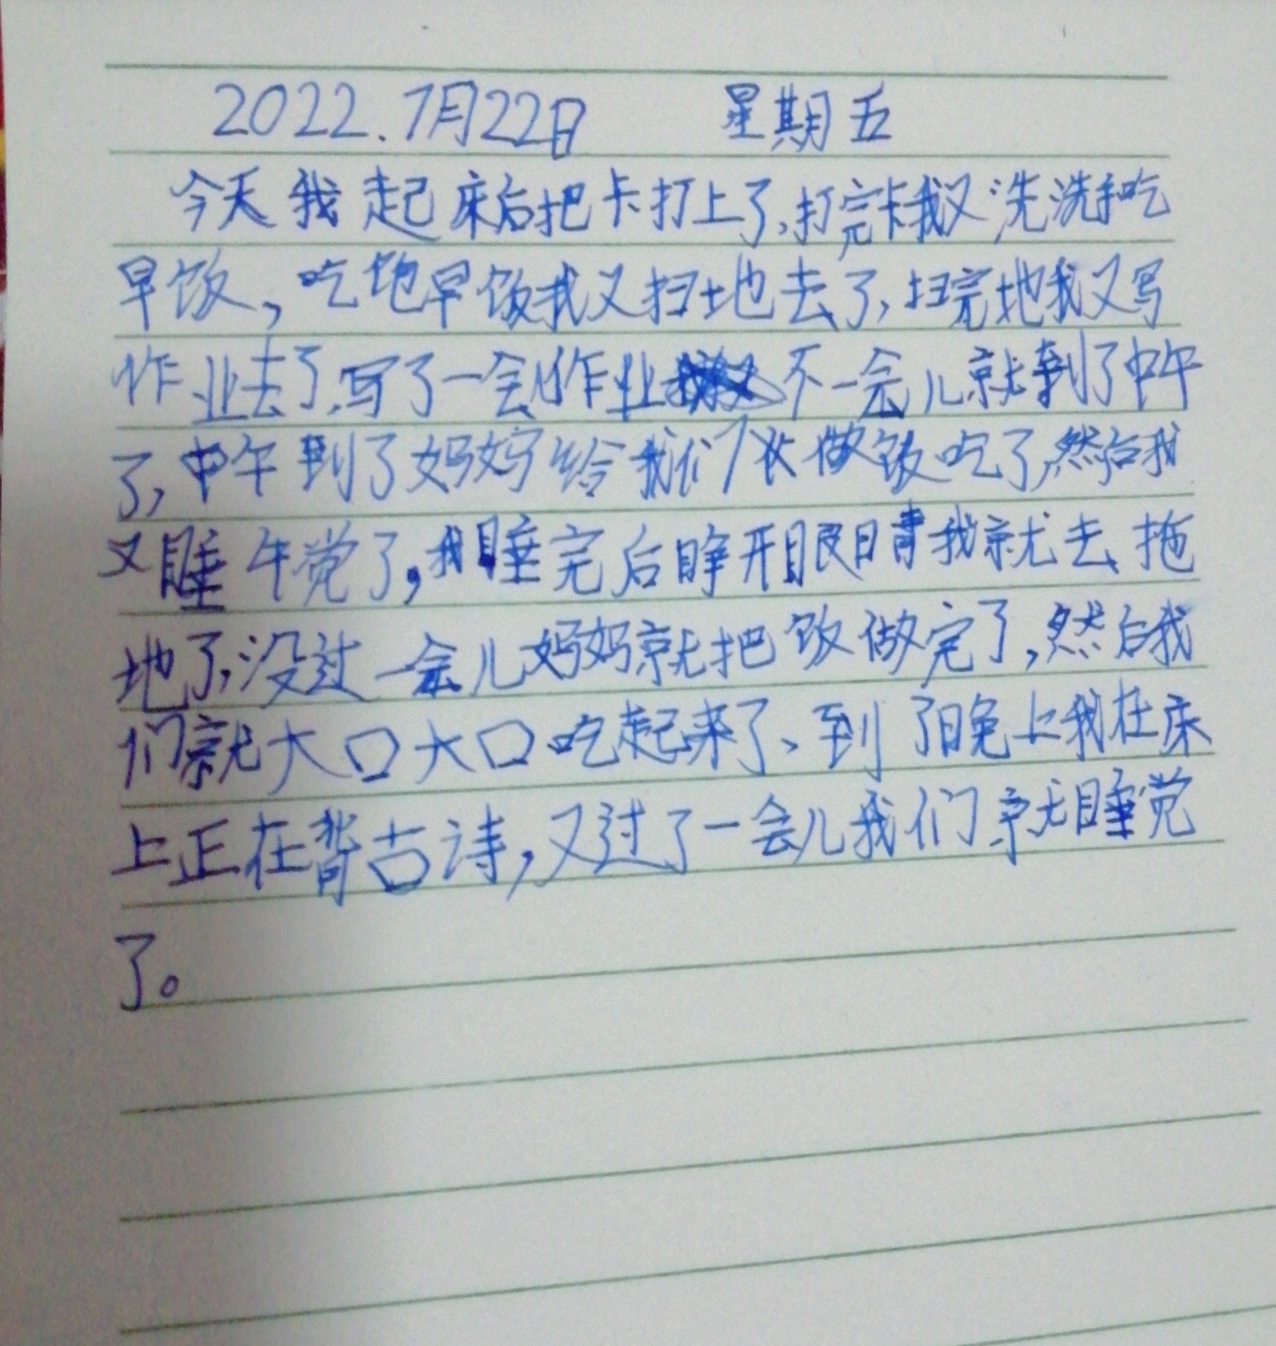 2022.7月22日 星期五
今天我起床后把卡打上了,打完卡我又洗洗手吃
早饭,吃饱早饭我又扫地去了,扫完地我又写
作业去了,写了一会儿作业不一会儿就到了中午
了,中午到了妈妈给我们做饭吃了,然后我
又睡午觉了,我睡完后睁开眼睛我就去拖
地了,没过一会儿妈妈就把饭做完了,然后我
们就大口大口吃起来了、到了晚上我在床
上正在背古诗,又过了一会儿我们就睡觉
了。